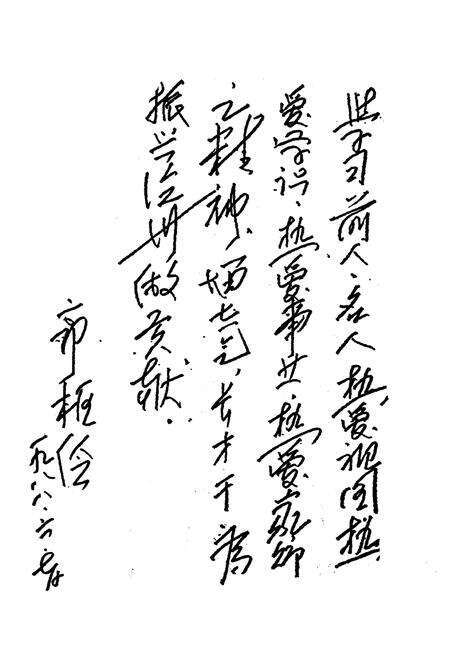 学习前人、名人热爱祖国、热
爱学识、热爱事业、热爱家乡
之精神、志气、长才干为
振兴江做贡献.
一九八八.六.